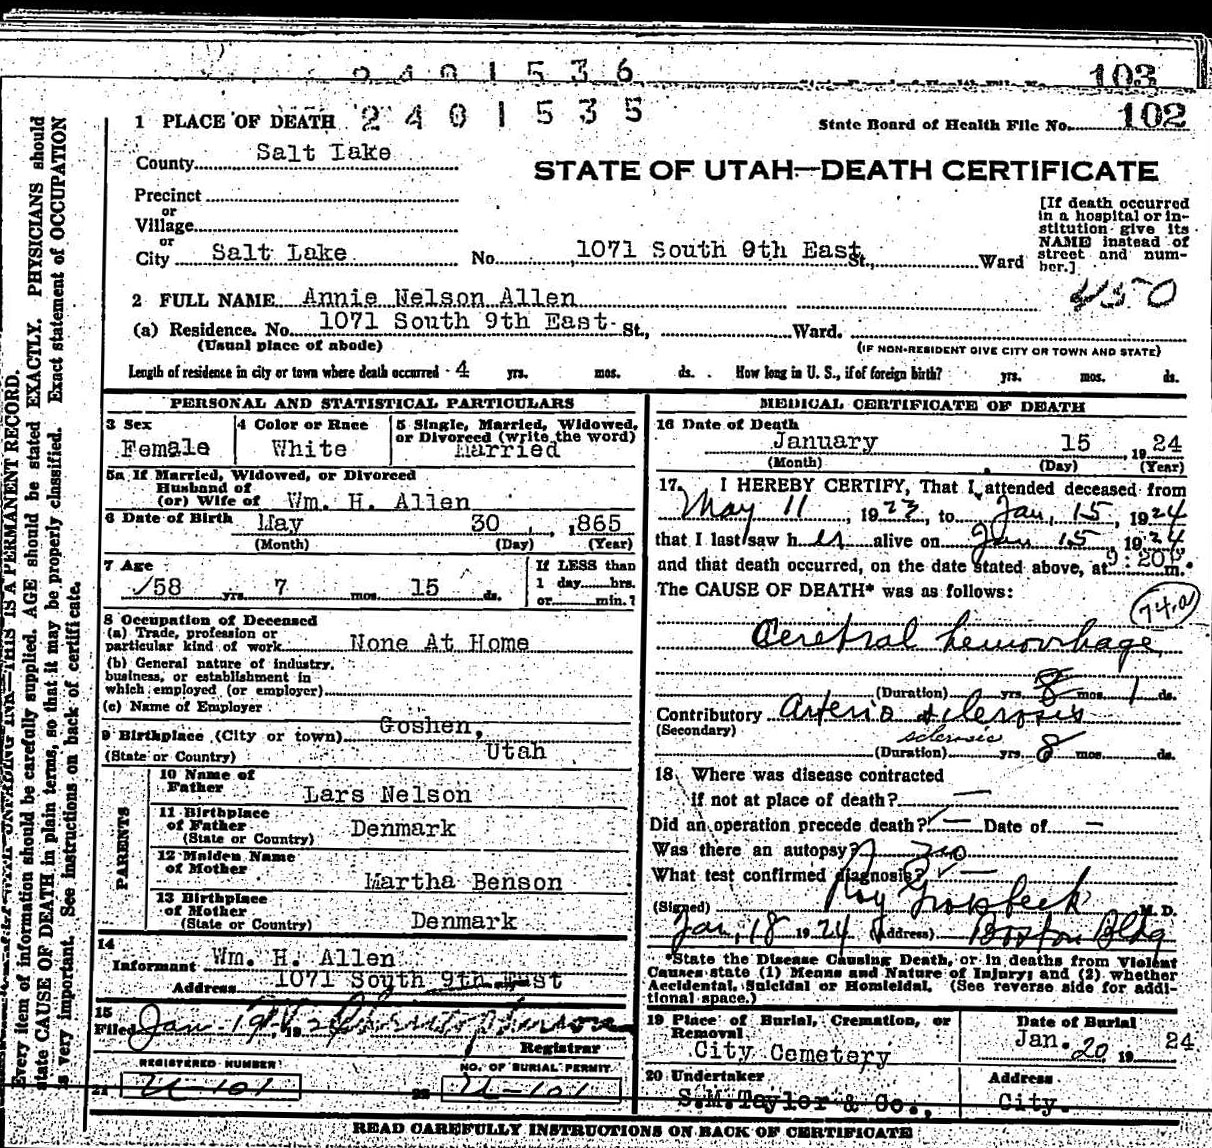 2401536
103
2401535
102
1 PLACE OF DEATH
State Board of Health File No.
County Salt Lake
STATE OF UTAH—DEATH CERTIFICATE
Precinct
or
Village
or
City Salt Lake No. 1071 South 9th East St., Ward
[If death occurred
in a hospital or in-
stitution give its
NAME instead of
street and num-
ber.]
450
2 FULL NAME Annie Nelson Allen
(a) Residence. No. 1071 South 9th East St., Ward.
(Usual place of abode)
(IF NON-RESIDENT GIVE CITY OR TOWN AND STATE)
Length of residence in city or town where death occurred 4 yrs. mos. ds. How long in U. S., if of foreign birth? yrs. mos. ds.
PERSONAL AND STATISTICAL PARTICULARS
3 Sex
Female
4 Color or Race
White
5 Single, Married, Widowed,
or Divorced (write the word)
Married
5a If Married, Widowed, or Divorced
Husband of
(or) Wife of Wm. H. Allen
6 Date of Birth May 30, 1865
(Month) (Day) (Year)
7 Age
58 yrs. 7 mos. 15 ds.
If LESS than
1 day hrs.
or min.?
8 Occupation of Deceased
(a) Trade, profession or
particular kind of work None At Home
(b) General nature of industry,
business, or establishment in
which employed (or employer)
(c) Name of Employer
9 Birthplace (City or town) Goshen,
(State or Country) Utah
PARENTS
10 Name of
Father Lars Nelson
11 Birthplace
of Father Denmark
(State or Country)
12 Maiden Name
of Mother
Martha Benson
13 Birthplace
of Mother
(State or Country) Denmark
14
Informant Wm. H. Allen
Address 1071 South 9th East
15
Filed Jan 19
Registrar
REGISTERED NUMBER
NO. OF BURIAL PERMIT
21 U-101
22 U-101
MEDICAL CERTIFICATE OF DEATH
16 Date of Death
January 15 1924
(Month) (Day) (Year)
17. I HEREBY CERTIFY, That I attended deceased from
May 11, 1923, to Jan, 15, 1924
that I last saw her alive on Jan 15, 1924
and that death occurred, on the date stated above, at 9:20 m.
The CAUSE OF DEATH* was as follows:
74.a
Cerebral hemorrhage
(Duration) yrs. 8 mos. 1 ds.
Contributory Arterio sclerosis
(Secondary) sclerosis
(Duration) yrs. 8 mos. ds.
18. Where was disease contracted
if not at place of death? —
Did an operation precede death? — Date of —
Was there an autopsy? no
What test confirmed diagnosis? —
(Signed) Roy Groesbeck M. D.
Jan, 18 1924 (Address) Boston Bldg
*State the Disease Causing Death, or in deaths from Violent
Causes state (1) Means and Nature of Injury; and (2) whether
Accidental, Suicidal or Homicidal. (See reverse side for addi-
tional space.)
19 Place of Burial, Cremation, or
Removal
City Cemetery
Date of Burial
Jan. 20 1924
20 Undertaker
S.M.Taylor & Co.,
Address
City.
READ CAREFULLY INSTRUCTIONS ON BACK OF CERTIFICATE
THIS IS A PERMANENT RECORD.
Every item of information should be carefully supplied. AGE should be stated EXACTLY. PHYSICIANS should
state CAUSE OF DEATH in plain terms, so that it may be properly classified. Exact statement of OCCUPATION
is very important. See instructions on back of certificate.